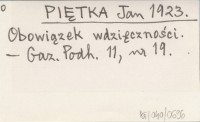 PIĘTKA Jan 1923.
Obowiązek wdzięczności.
— Gaz. Podh. 11, nr 19.